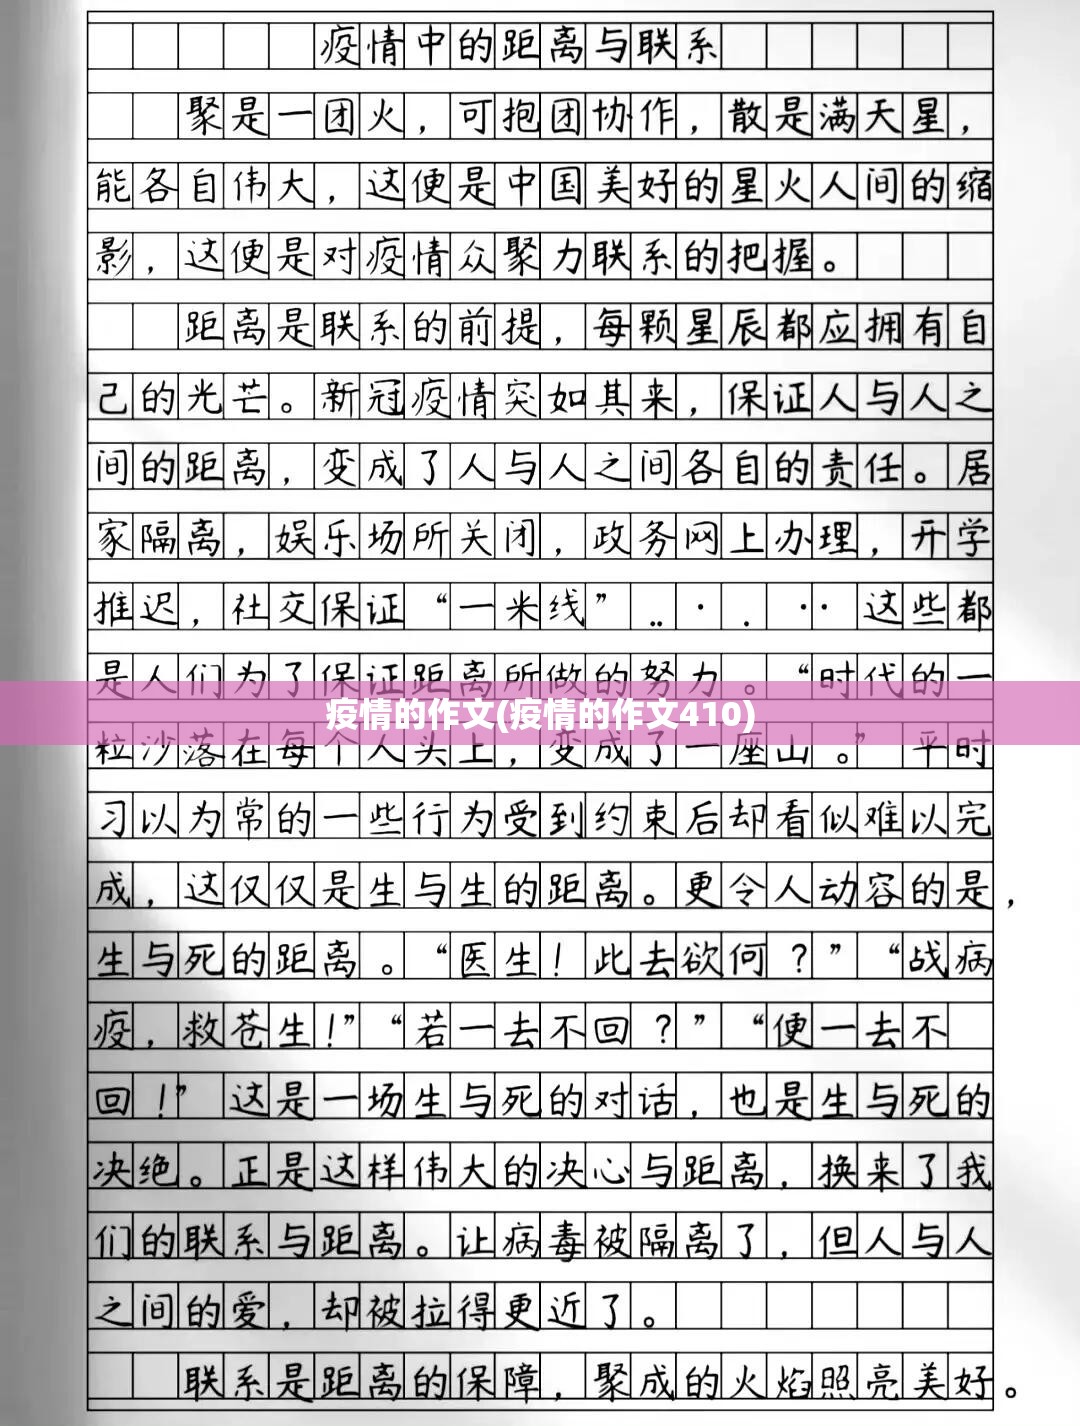 疫情中的距离与联系
聚是一团火，可抱团协作，散是满天星，
能各自伟大，这便是中国美好的星火人间的缩
影，这便是对疫情众聚力联系的把握。
距离是联系的前提，每颗星辰都应拥有自
己的光芒。新冠疫情突如其来，保证人与人之
间的距离，变成了人与人之间各自的责任。居
家隔离，娱乐场所关闭，政务网上办理，开学
推迟，社交保证“一米线”..·.··这些都
是人们为了保证距离所做的努力。“时代的一
疫情的作文(疫情的作文410)
粒沙落在每个人头上，变成了一座山。”平时
习以为常的一些行为受到约束后却看似难以完
成，这仅仅是生与生的距离。更令人动容的是，
生与死的距离。“医生！此去欲何？”“战病
疫，救苍生！”“若一去不回？”“便一去不
回！”这是一场生与死的对话，也是生与死的
决绝。正是这样伟大的决心与距离，换来了我
们的联系与距离。让病毒被隔离了，但人与人
之间的爱，却被拉得更近了。
联系是距离的保障，聚成的火焰照亮美好。